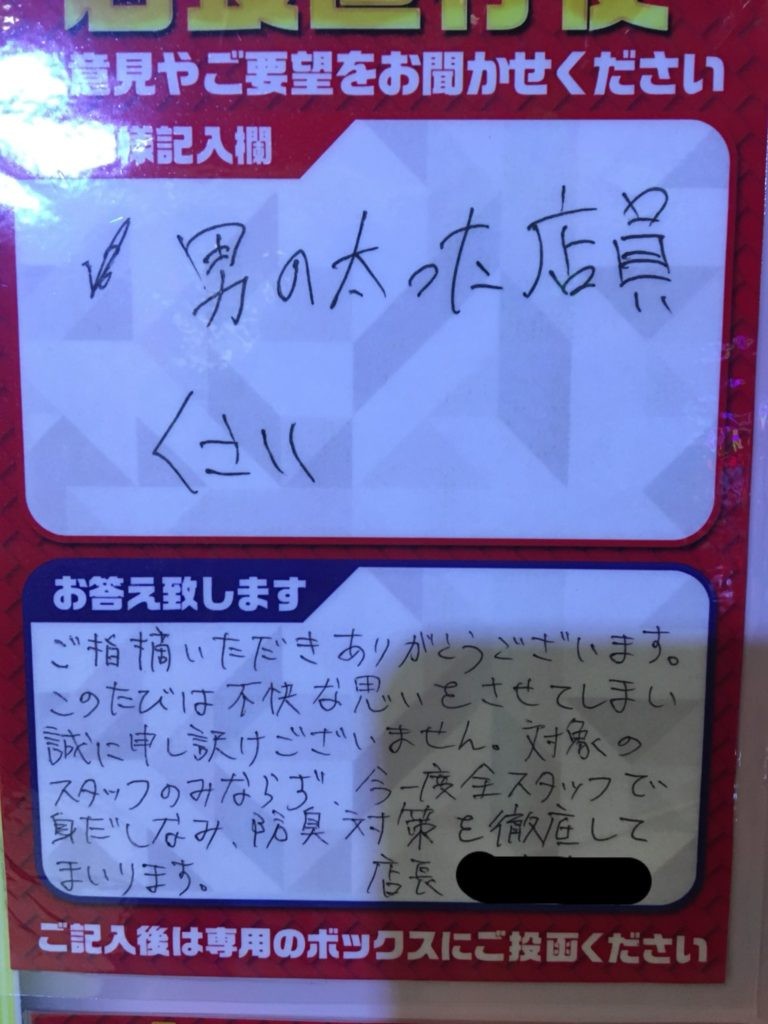 意見やご要望をお聞かせください
様記入欄
男の太った店員
くさい
お答え致します
ご指摘いただきありがとうございます。
このたびは不快な思いをさせてしまい
誠に申し訳けございません。対象の
スタッフのみならず、今一度全スタッフで
身だしなみ、防臭対策を徹底して
まいります。 店長
ご記入後は専用のボックスにご投函ください